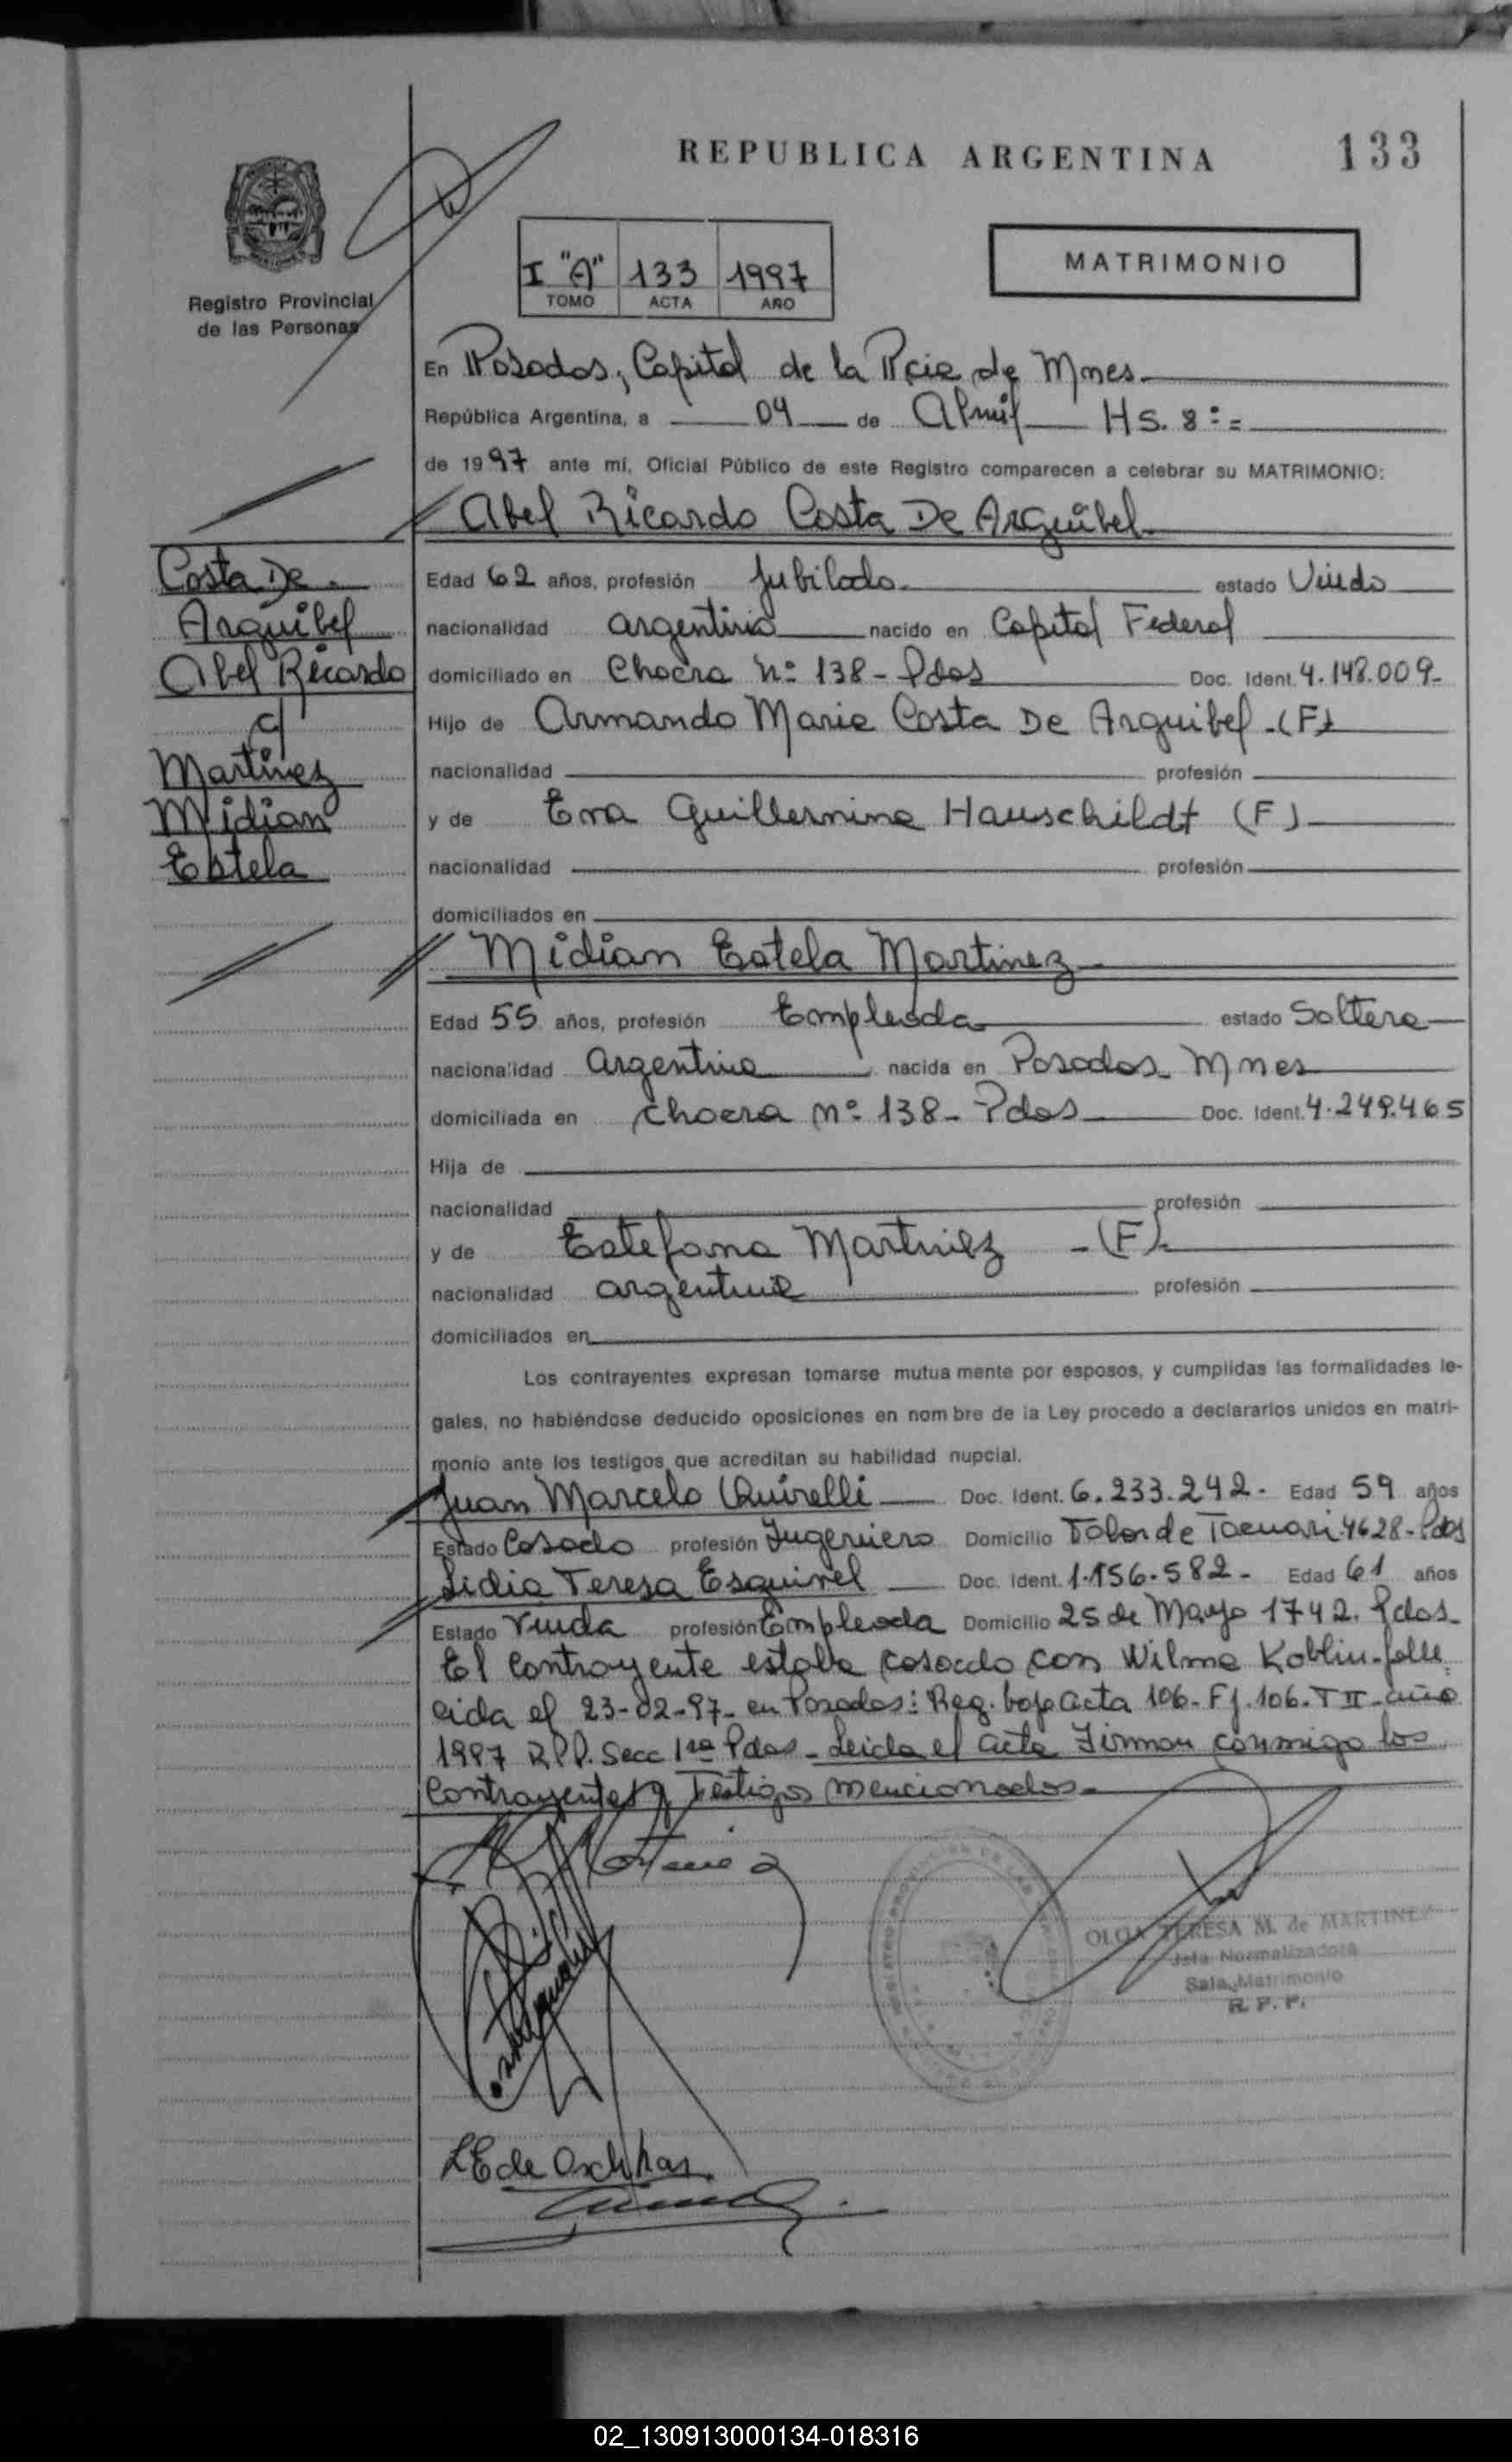 REPUBLICA ARGENTINA
133
Registro Provincial
de las Personas
I "A" 133 1997
TOMO ACTA AÑO
MATRIMONIO
En Posadas, Capital de la Pcia de Mnes
República Argentina, a 04 de Abril Hs. 8:=
de 1997 ante mí, Oficial Público de este Registro comparecen a celebrar su MATRIMONIO:
Abel Ricardo Costa De Arguibel
Costa De
Arguibel
Abel Ricardo
c/
Martinez
Midian
Estela
Edad 62 años, profesión Jubilado estado Viudo
nacionalidad argentina nacido en Capital Federal
domiciliado en Chacra Nº 138 - Pdas Doc. Ident. 4.148.009-
Hijo de Armando Maria Costa De Arguibel - (F)
nacionalidad profesión
y de Ema Guillermina Hauschildt (F)
nacionalidad profesión
domiciliados en
Midian Estela Martinez
Edad 55 años, profesión Empleada estado Soltera
nacionalidad Argentina nacida en Posadas Mnes
domiciliada en Chacra nº 138 - Pdas Doc. Ident. 4.249.465
Hija de
nacionalidad profesión
y de Estefana Martinez - (F)
nacionalidad argentina profesión
domiciliados en
Los contrayentes expresan tomarse mutua mente por esposos, y cumplidas las formalidades le-
gales, no habiéndose deducido oposiciones en nom bre de la Ley procedo a declararlos unidos en matri-
monio ante los testigos que acreditan su habilidad nupcial.
Juan Marcelo Quirelli Doc. Ident. 6.233.242- Edad 59 años
Estado Casado profesión Ingeniero Domicilio de Tacuari 4628 - Pdas
Lidia Teresa Esquivel Doc. Ident. 1.156.582- Edad 61 años
Estado Viuda profesión Empleada Domicilio 25 de Mayo 1742. Pdas-
El Contrayente estaba casado con Wilma Koblin - falle
cida el 23-02-97- en Posadas: Reg. bajo acta 106- Fº. 106- T II- año
1997 R.P.P. Secc 1ra Pdas - Leida el acta Firman conmigo los
Contrayentes y Testigos mencionados-
OLGA TERESA M. de MARTINEZ
Jefa Normalizadora
Sala Matrimonio
R. P. P.
02_130913000134-018316